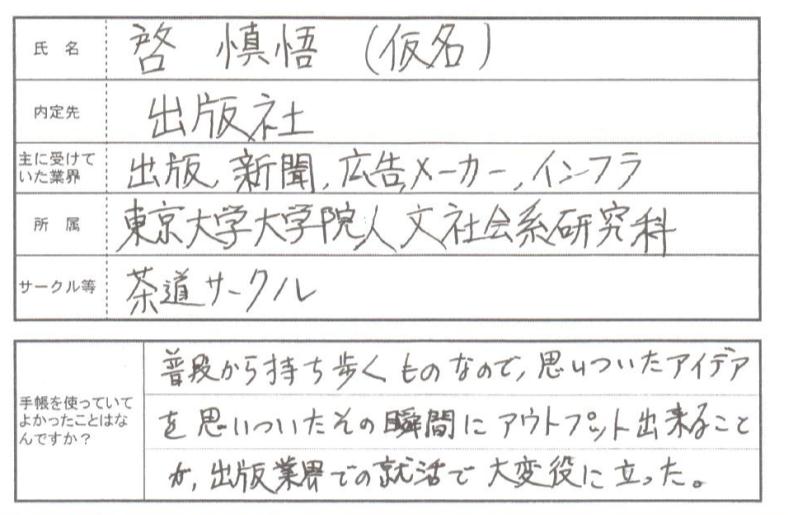 氏 名
啓 慎悟 (仮名)
内定先
出版社
主に受けて
いた業界
出版, 新聞, 広告, メーカー, インフラ
所 属
東京大学大学院人文社会系研究科
サークル等
茶道サークル
手帳を使っていて
よかったことはな
んですか?
普段から持ち歩くものなので, 思いついたアイデア
を思いついたその瞬間にアウトプット出来ること
が, 出版業界での就活で大変役に立った。